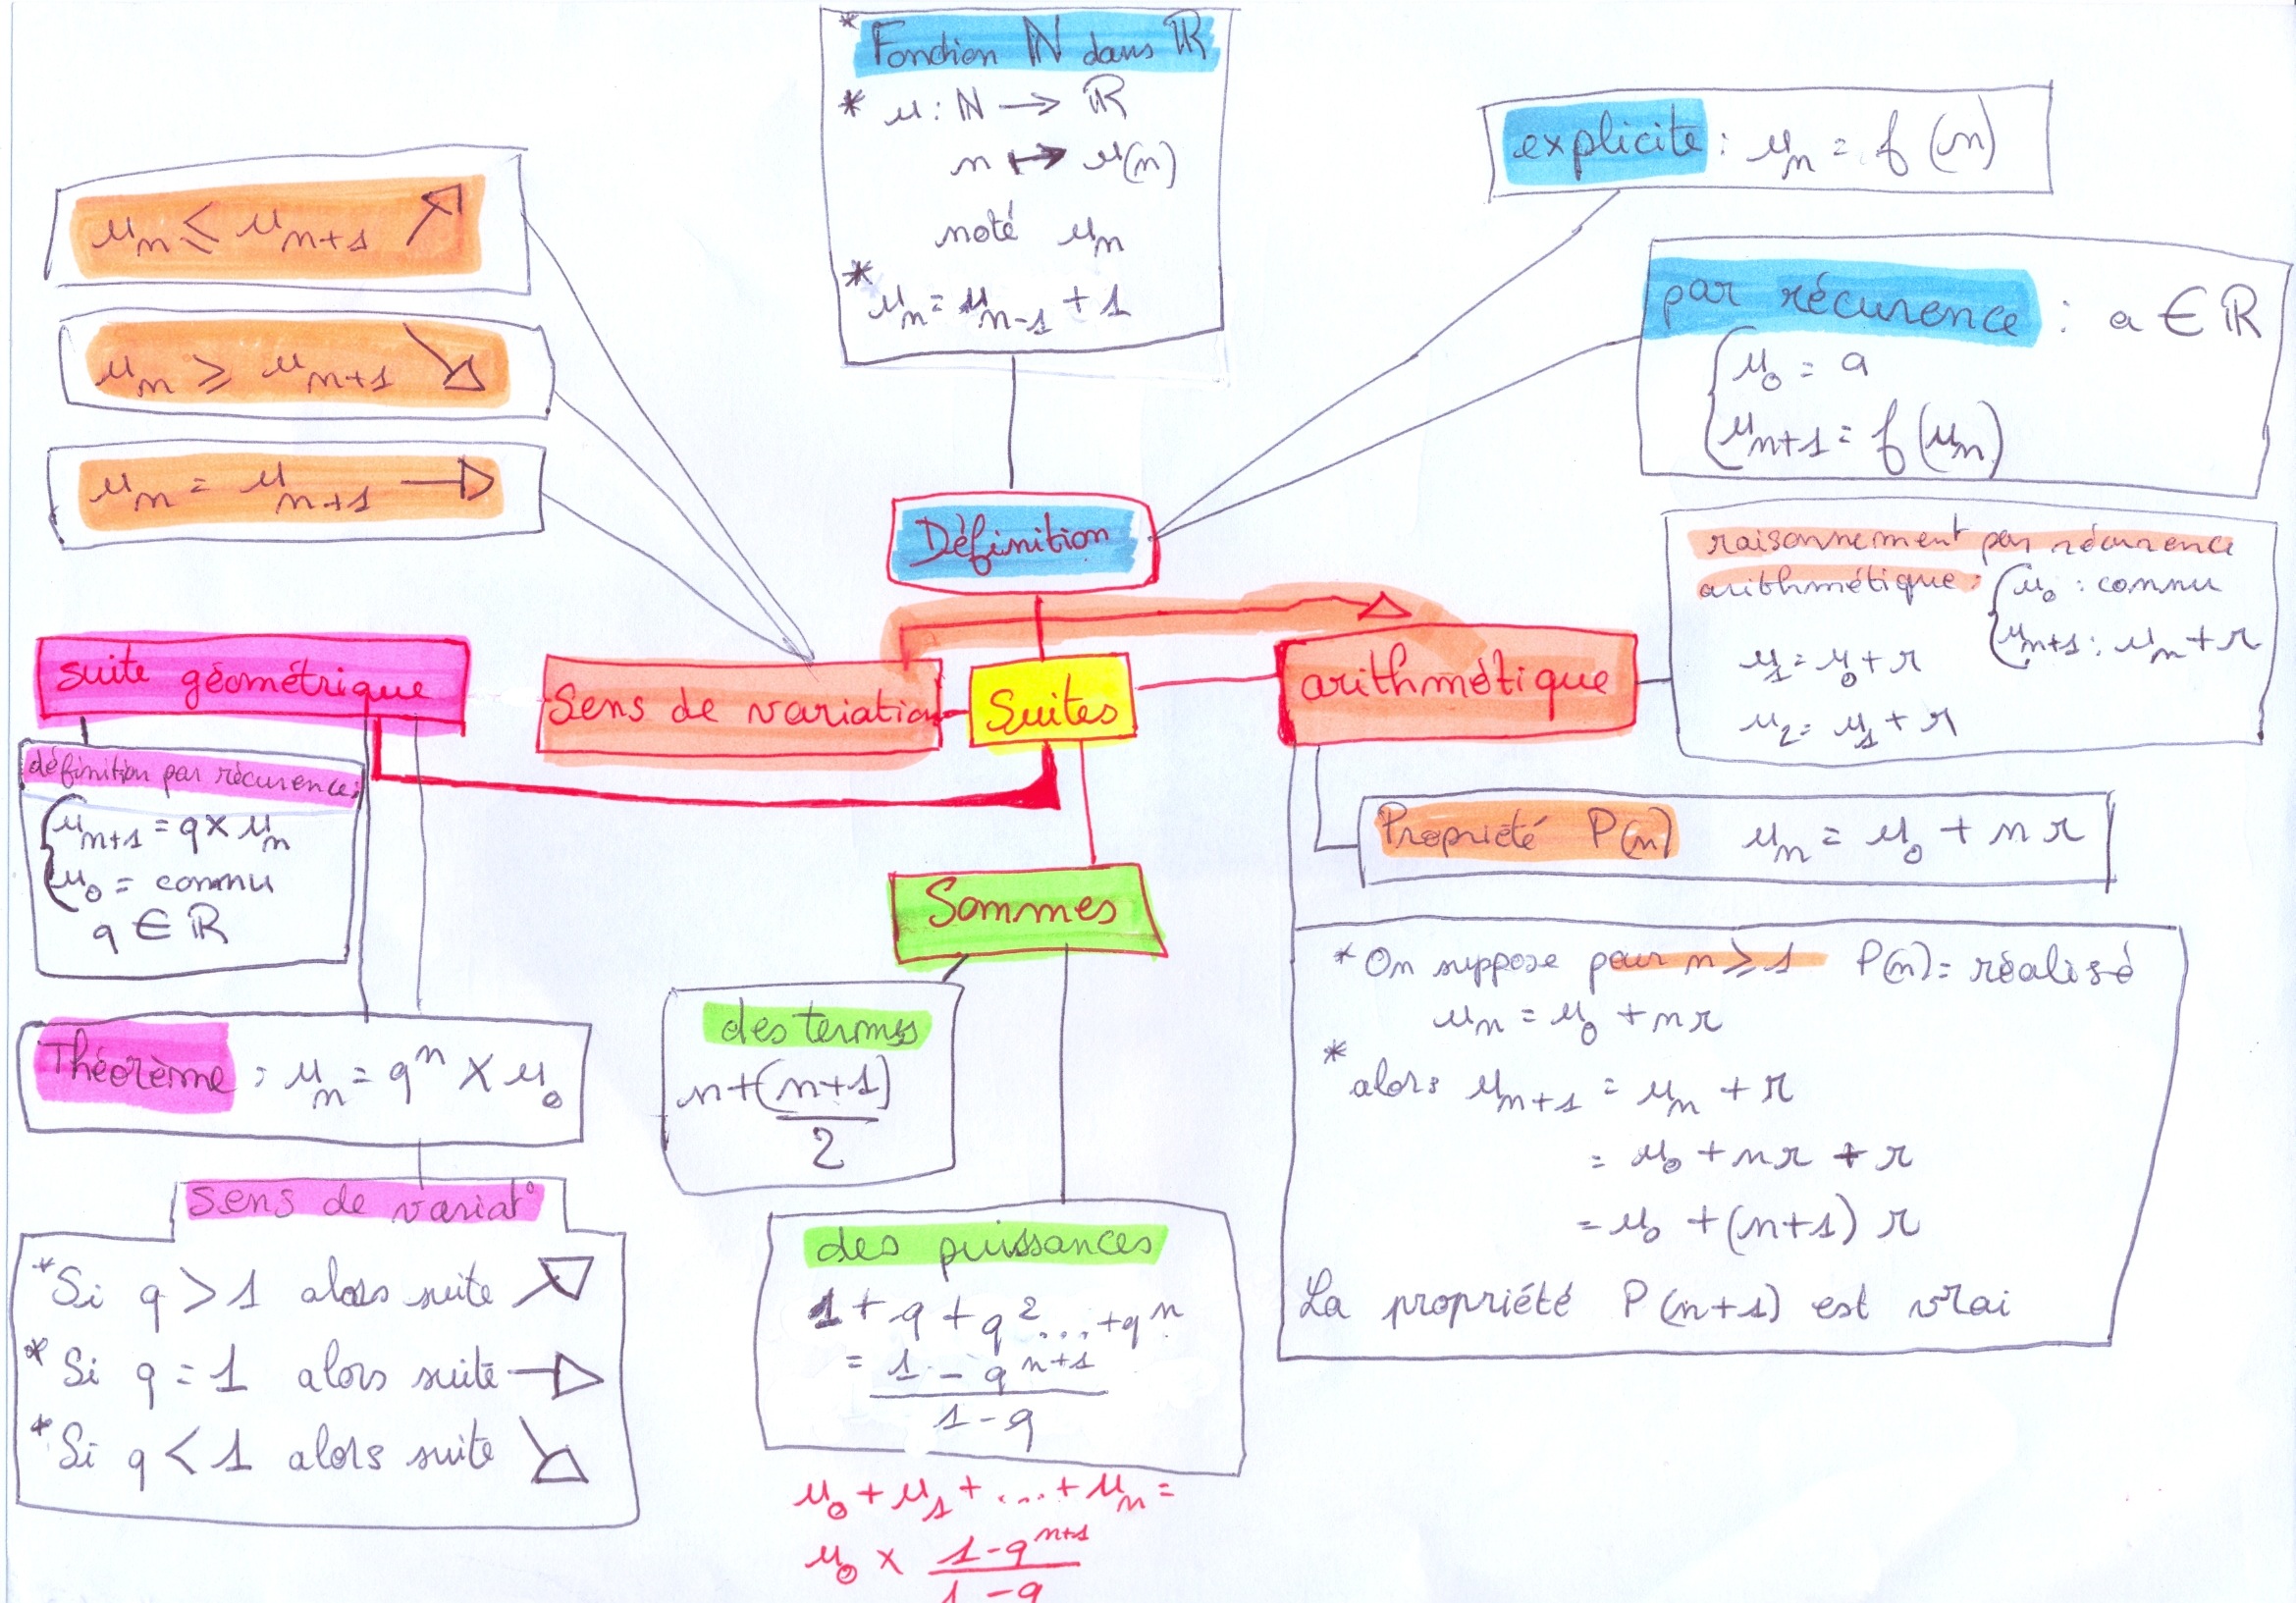 * Fonction ℕ dans ℝ
* u : ℕ → ℝ
n ↦ u(n)
noté uₙ
* uₙ = uₙ₋₁ + 1
explicite : uₙ = f(n)
par récurence : a ∈ ℝ
{ u₀ = a
uₙ₊₁ = f(uₙ)
uₙ ⩽ uₙ₊₁ ↗
uₙ ⩾ uₙ₊₁ ↘
uₙ = uₙ₊₁ →
Définition
raisonnement par récurence
arithmétique : { u₀ : connu
uₙ₊₁ : uₙ + r
u₁ = u₀ + r
u₂ = u₁ + r
suite géométrique
Sens de variation
Suites
arithmétique
définition par récurence :
{ uₙ₊₁ = q × uₙ
u₀ = connu
q ∈ ℝ
Propriété P(n) uₙ = u₀ + nr
Sommes
* On suppose pour n ⩾ 1 P(n) = réalisé
uₙ = u₀ + nr
* alors uₙ₊₁ = uₙ + r
= u₀ + nr + r
= u₀ + (n+1) r
La propriété P(n+1) est vrai
des termes
n+(n+1)
2
Théorème : uₙ = qⁿ × u₀
sens de variat°
* Si q > 1 alors suite ↗
* Si q = 1 alors suite →
* Si q < 1 alors suite ↘
des puissances
1 + q + q² ... + qⁿ
= 1 - qⁿ⁺¹
1 - q
u₀ + u₁ + .... + uₙ =
u₀ × 1 - qⁿ⁺¹
1 - q